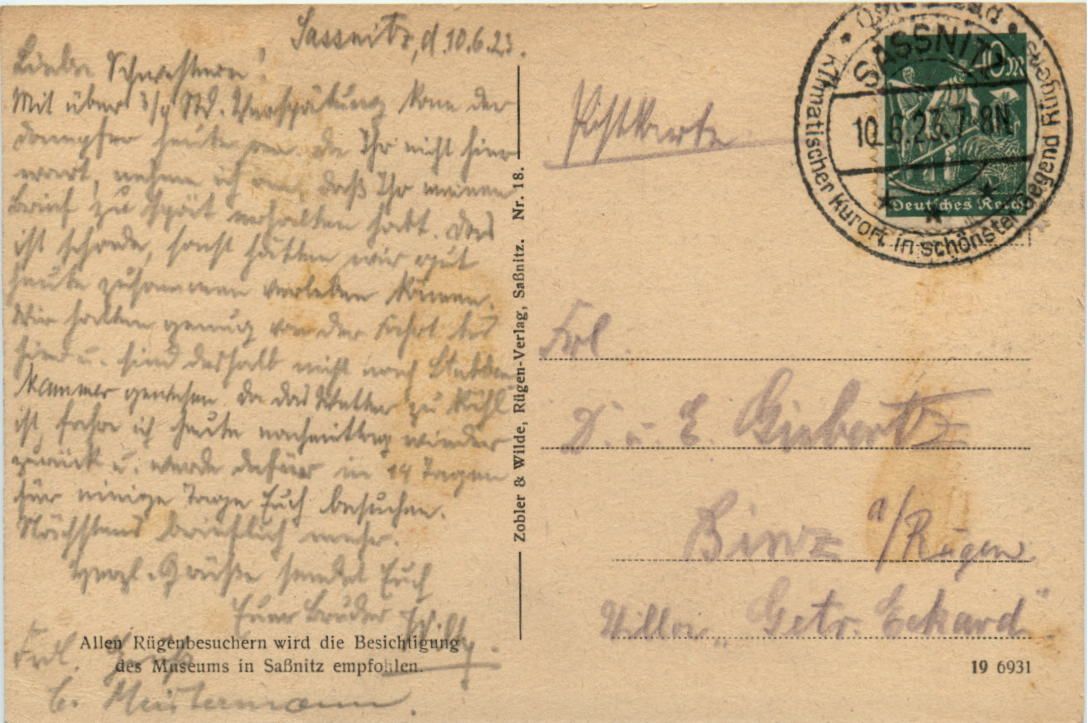 Sassnitz, d. 10.6.23.
Liebe Schwestern!
Mit über 3/4 Std. Verspätung kam der
Dampfer heute an. Da Ihr nicht hier
wart, nehme ich an, daß Ihr meinen
Brief zu spät erhalten habt. Das
ist schade, sonst hätten wir gut
heute zusammen verleben können.
Wir hatten genug von der Fahrt bis
hier u. sind deshalb nicht nach Stubben
kammer gewesen. Da das Wetter zu kühl
ist, fahre ich heute nachmittag wieder
zurück u. werde dafür in 14 Tagen
für einige Tage Euch besuchen.
Nächstens brieflich mehr.
Herzl. Grüße sendet Euch
Euer Bruder Willy.
Frdl. Gruß
E. Meistermann.
Allen Rügenbesuchern wird die Besichtigung
des Museums in Saßnitz empfohlen.
Zobler & Wilde, Rügen-Verlag, Saßnitz. Nr. 18.
Postkarte
Ostseebad
SASSNITZ
10.6.23.7-8N
Klimatischer Kurort in schönster Gegend Rügens
10 M
Deutsches Reich
Frl.
D. u. E. Giebertz
Binz a/Rügen
Villa „Getr. Eckard"
19 6931